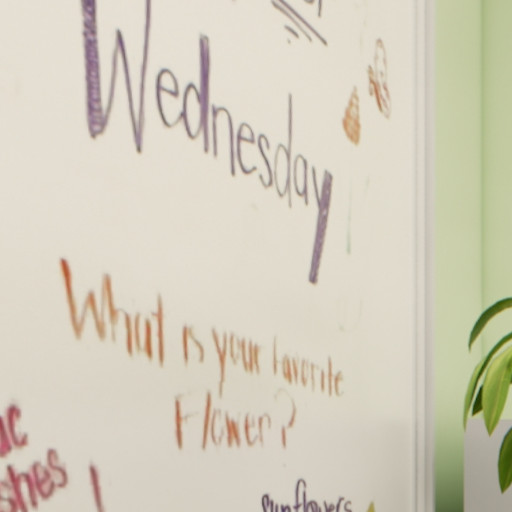 Wednesday
What is your favorite
Flower?
sunflowers